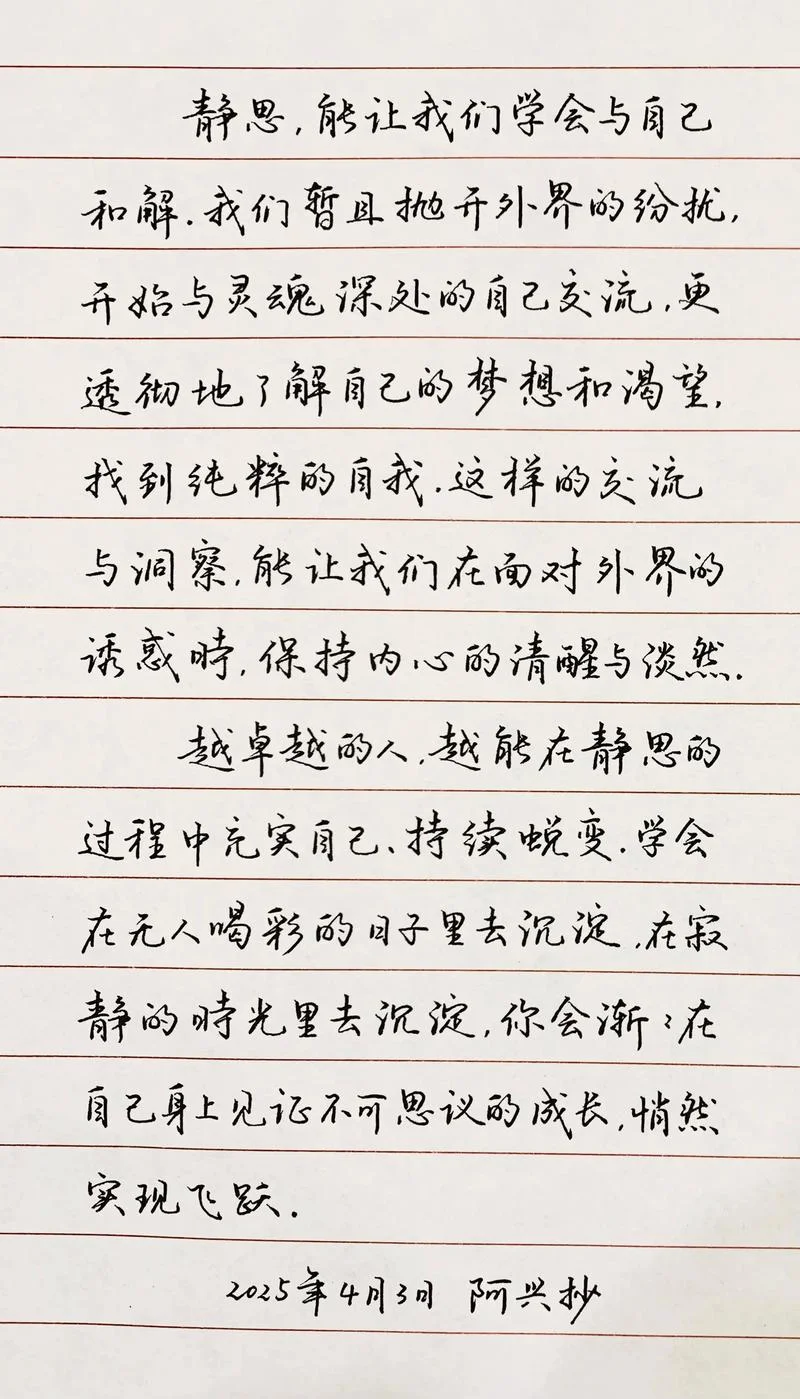 静思,能让我们学会与自己
和解.我们暂且抛开外界的纷扰,
开始与灵魂深处的自己交流,更
透彻地了解自己的梦想和渴望,
找到纯粹的自我.这样的交流
与洞察,能让我们在面对外界的
诱惑時,保持内心的清醒与淡然.
越卓越的人,越能在静思的
过程中充实自己、持续蜕变.学会
在无人喝彩的日子里去沉淀,在寂
静的時光里去沉淀,你会渐〻在
自己身上见证不可思议的成长,悄然
实现飞跃.
2025年4月3日 阿兴抄